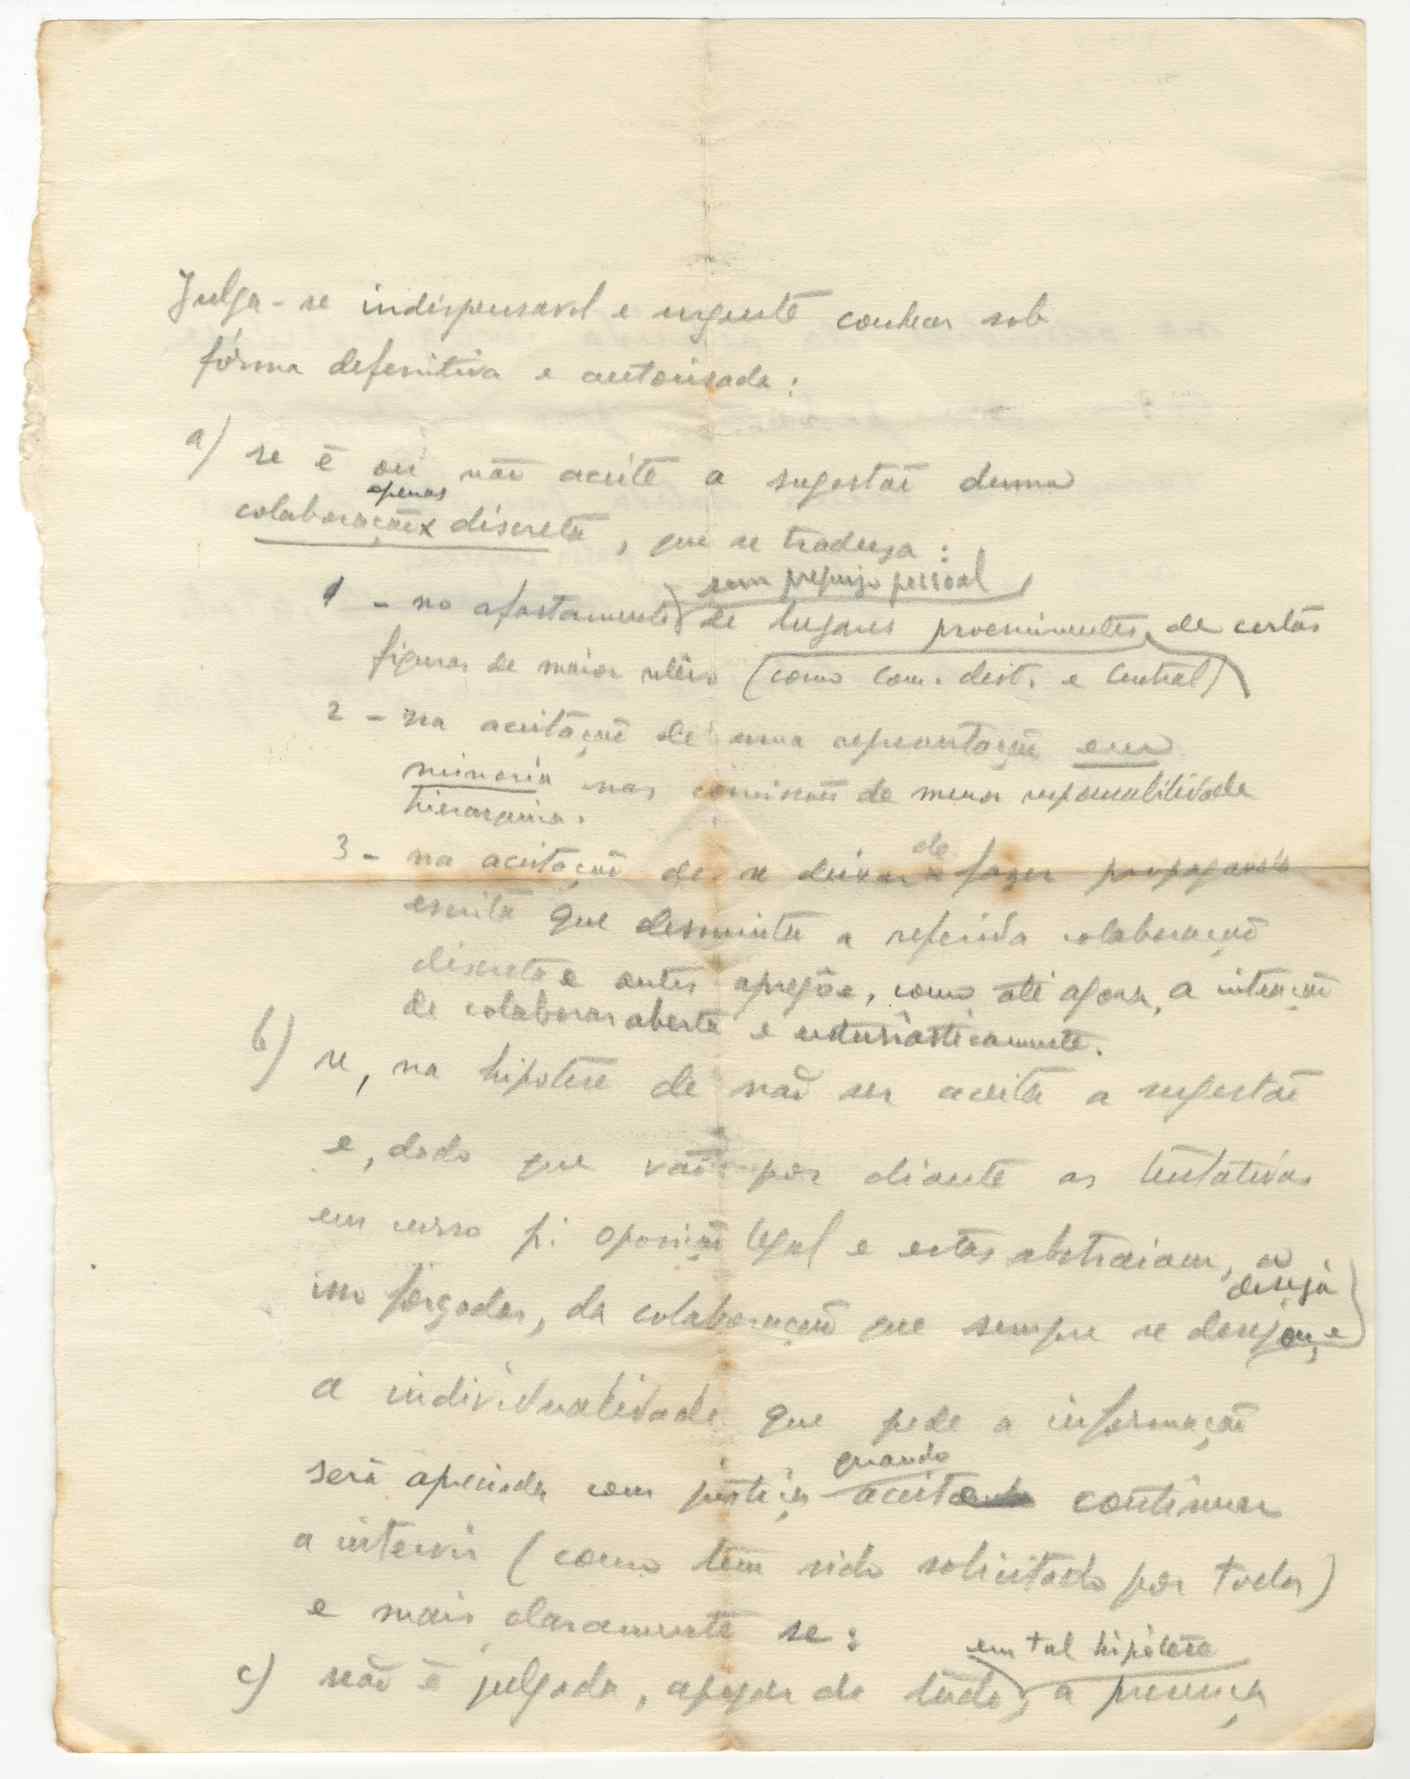 Julga-se indispensavel e urgente conhecer sob
fórma defenitiva e autorisada:
a) se é ou não aceite a sugestão duma
apenas
colaboração x discreta, que se traduza:
sem prejuizo pessoal
1 - no afastamento de lugares proeminentes, de certas
figuras de maior relêvo (como com. dist. e Central)
2 - na aceitação de uma representação em
minoria nas comissões de menor responsabilidade
hierarquica.
de
3 - na aceitação de se deixar fazer propaganda
escrita que desminta a referida colaboração
discreta e antes apregôe, como até agora, a intenção
de colaborar aberta e entusiasticamente.
b) se, na hipotese de não ser aceite a sugestão
e, dado que vão por diante as tentativas
em curso p. oposição legal e estas abstraiam, a
isso forçadas, da colaboração que sempre se desejou, e
deseja
a individualidade que pede a informação
será apreciada com justiça
quando
aceita continuar
a intervir (como tem sido solicitado por todos)
e mais claramente se:
em tal hipótese
c) não é julgada, apezar de tudo, a presença